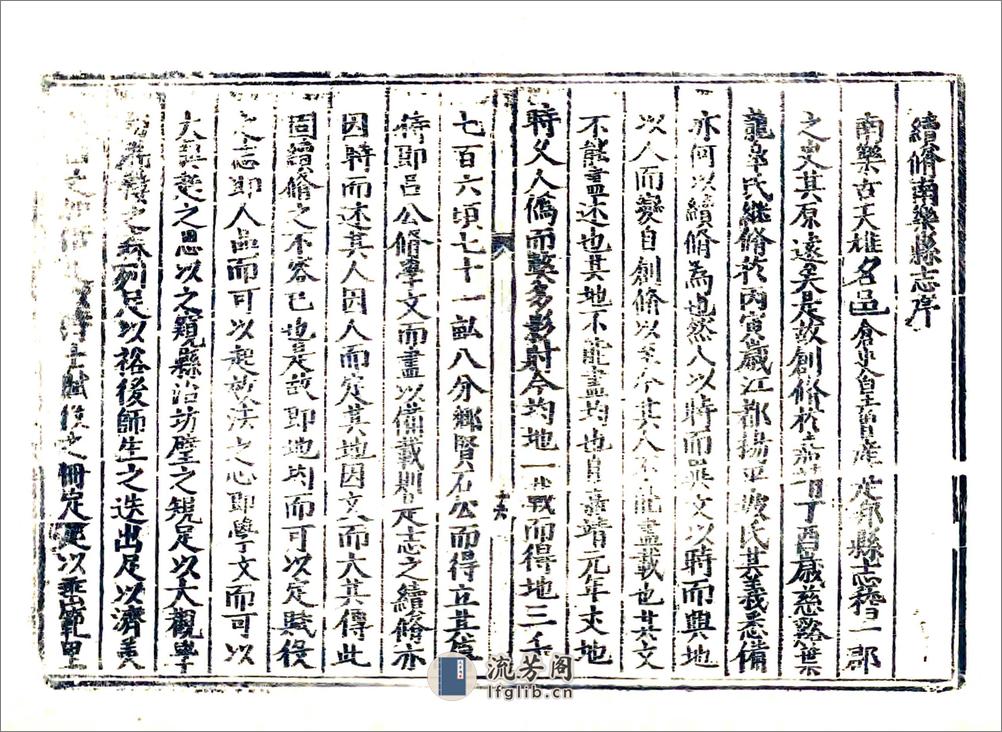 續脩南樂縣志序
南樂古天雄名邑倉史皇實產是鄉縣志稽一郡
之史其原遠矣是故創脩於嘉靖丁酉歲慈谿葉
氏繼脩於丙寅歲江都楊平波氏其義悉備
亦何以續脩為也然人以時而異文以時而興地
以人而變自創脩以至今其人不能盡載也其文
不能盡述也其地不能盡均也自嘉靖元年丈地
時父人偽而弊多影射今均地一載而得地三千
七百六頃七十一畝八分鄉賢石公而得立其傳
待即呂公脩學文而盡以備載則是志之續脩亦
因時而述其人因人而定其地因文而大其傳此
固續脩之不容已也是故即地均而可以定賦役
之志即人品而可以起效法之心即學文而可以
大其興之思以之觀縣治坊壁之規足以大觀學
之森列足以裕後師生之迭出足以濟美
之冊定足以垂範里
流芳阁
lfglib.cn